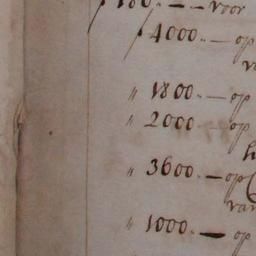 180.-- voor
4000.- op
" 1800.- op
" 2000 - op
" 3600.- op
van
" 1000.- op